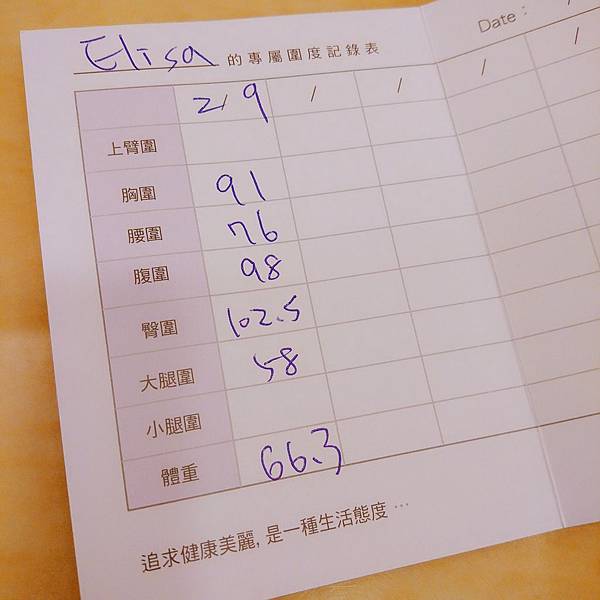 Elisa 的專屬圍度記錄表
Date : /
2/9 / / / /
上臂圍
胸圍 91
腰圍 76
腹圍 98
臀圍 102.5
大腿圍 58
小腿圍
體重 66.3
追求健康美麗, 是一種生活態度 …